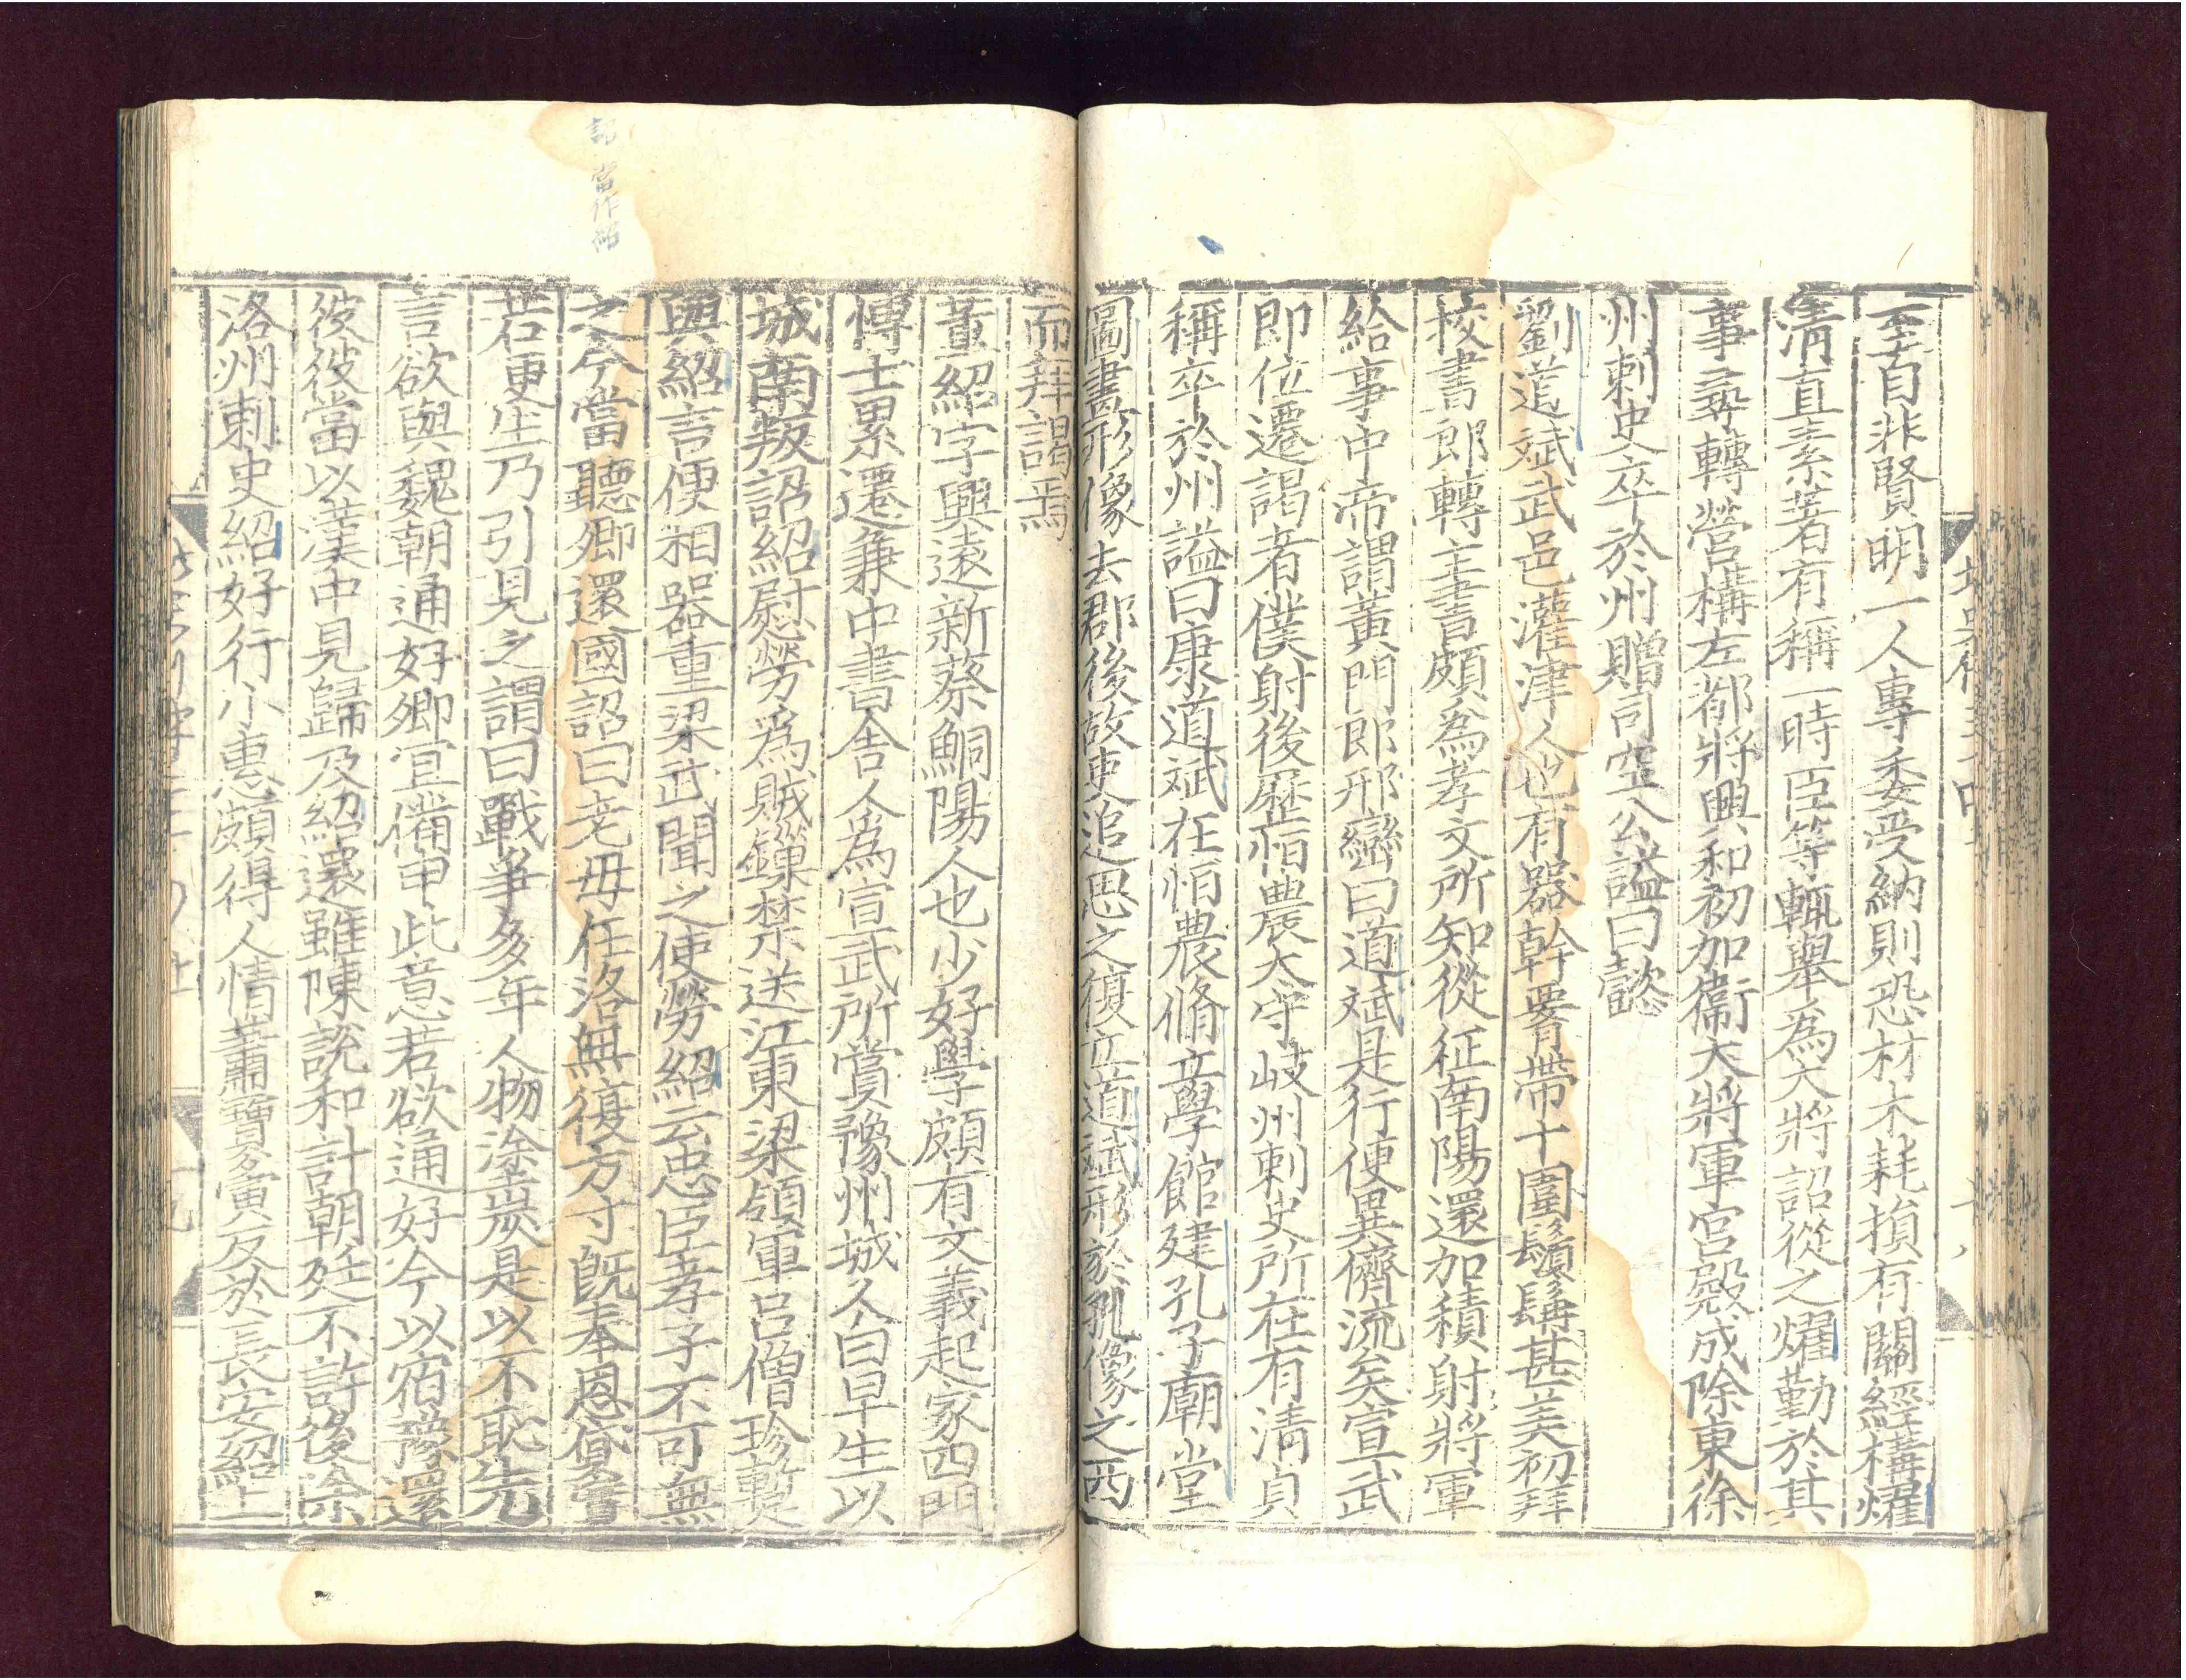 至自非賢明一人專委受納則恐材木耗損有關經構燿
清直素著有稱一時臣等輒舉爲大將詔從之燿勤於其
事尋轉營構左都將興和初加衞大將軍宮殿成除東徐
州刺史卒於州贈司空公謚曰懿
劉道斌武邑灌津人也有器幹晉帶十圍鬚髯甚美初拜
校書郎轉主書頗爲孝文所知從征南陽還加積射將軍
給事中帝謂黃門郎邢巒曰道斌是行便異儕流矣宣武
即位遷謁者僕射後歷恒農太守岐州刺史所在有清貞
稱卒於州謚曰康道斌在恒農脩立學館建孔子廟堂
圖畫形像去郡後故吏追思之復立道斌形於孔像之西
而拜謁焉
董紹字興遠新蔡鮦陽人也少好學頗有文義起家四門
博士累遷兼中書舍人爲宣武所賞豫州城人白早生以
城南叛詔紹慰勞爲賊鏁禁送江東梁領軍呂僧珍暫
與紹言便相器重梁武聞之使勞紹云忠臣孝子不可無
之今當聽卿還國詔曰老母在洛無復方寸旣奉恩貸實
若更生乃引見之謂曰戰爭多年人物塗炭是以不恥先
言欲與魏朝通好卿宜備申此意若欲通好今以宿豫還
彼彼當以漢中見歸及紹還雖陳說和計朝廷不許後除
洛州刺史紹好行小惠頗得人情蕭寶夤反於長安紹上
記當作紹